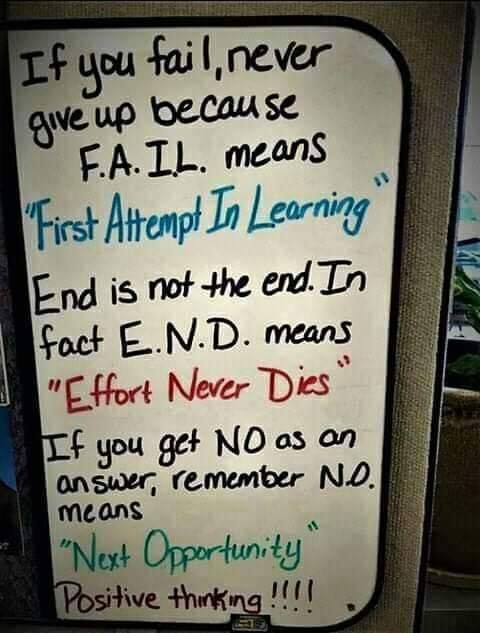 If you fail, never
give up because
F.A.I.L. means
"First Attempt In Learning"
End is not the end. In
fact E.N.D. means
"Effort Never Dies"
If you get NO as an
answer, remember N.O.
means
"Next Opportunity"
Positive thinking!!!!.